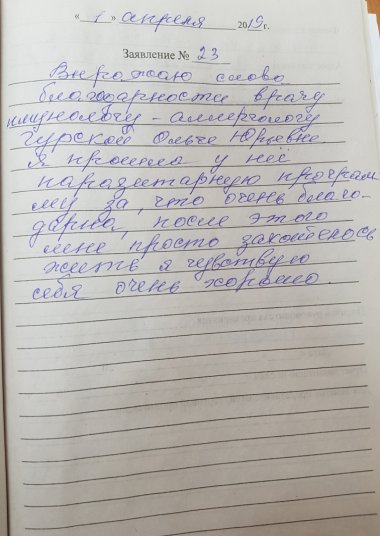 « 1 » апреля 2019 г.
Заявление № 23
Выражаю слова
благодарности врачу
иммунологу - аллергологу
Гурской Ольге Юрьевне
Я прошла у неё
паразитарную програм
му за, что очень благо-
дарна, после этого
мне просто захотелось
жить я чувствую
себя очень хорошо.